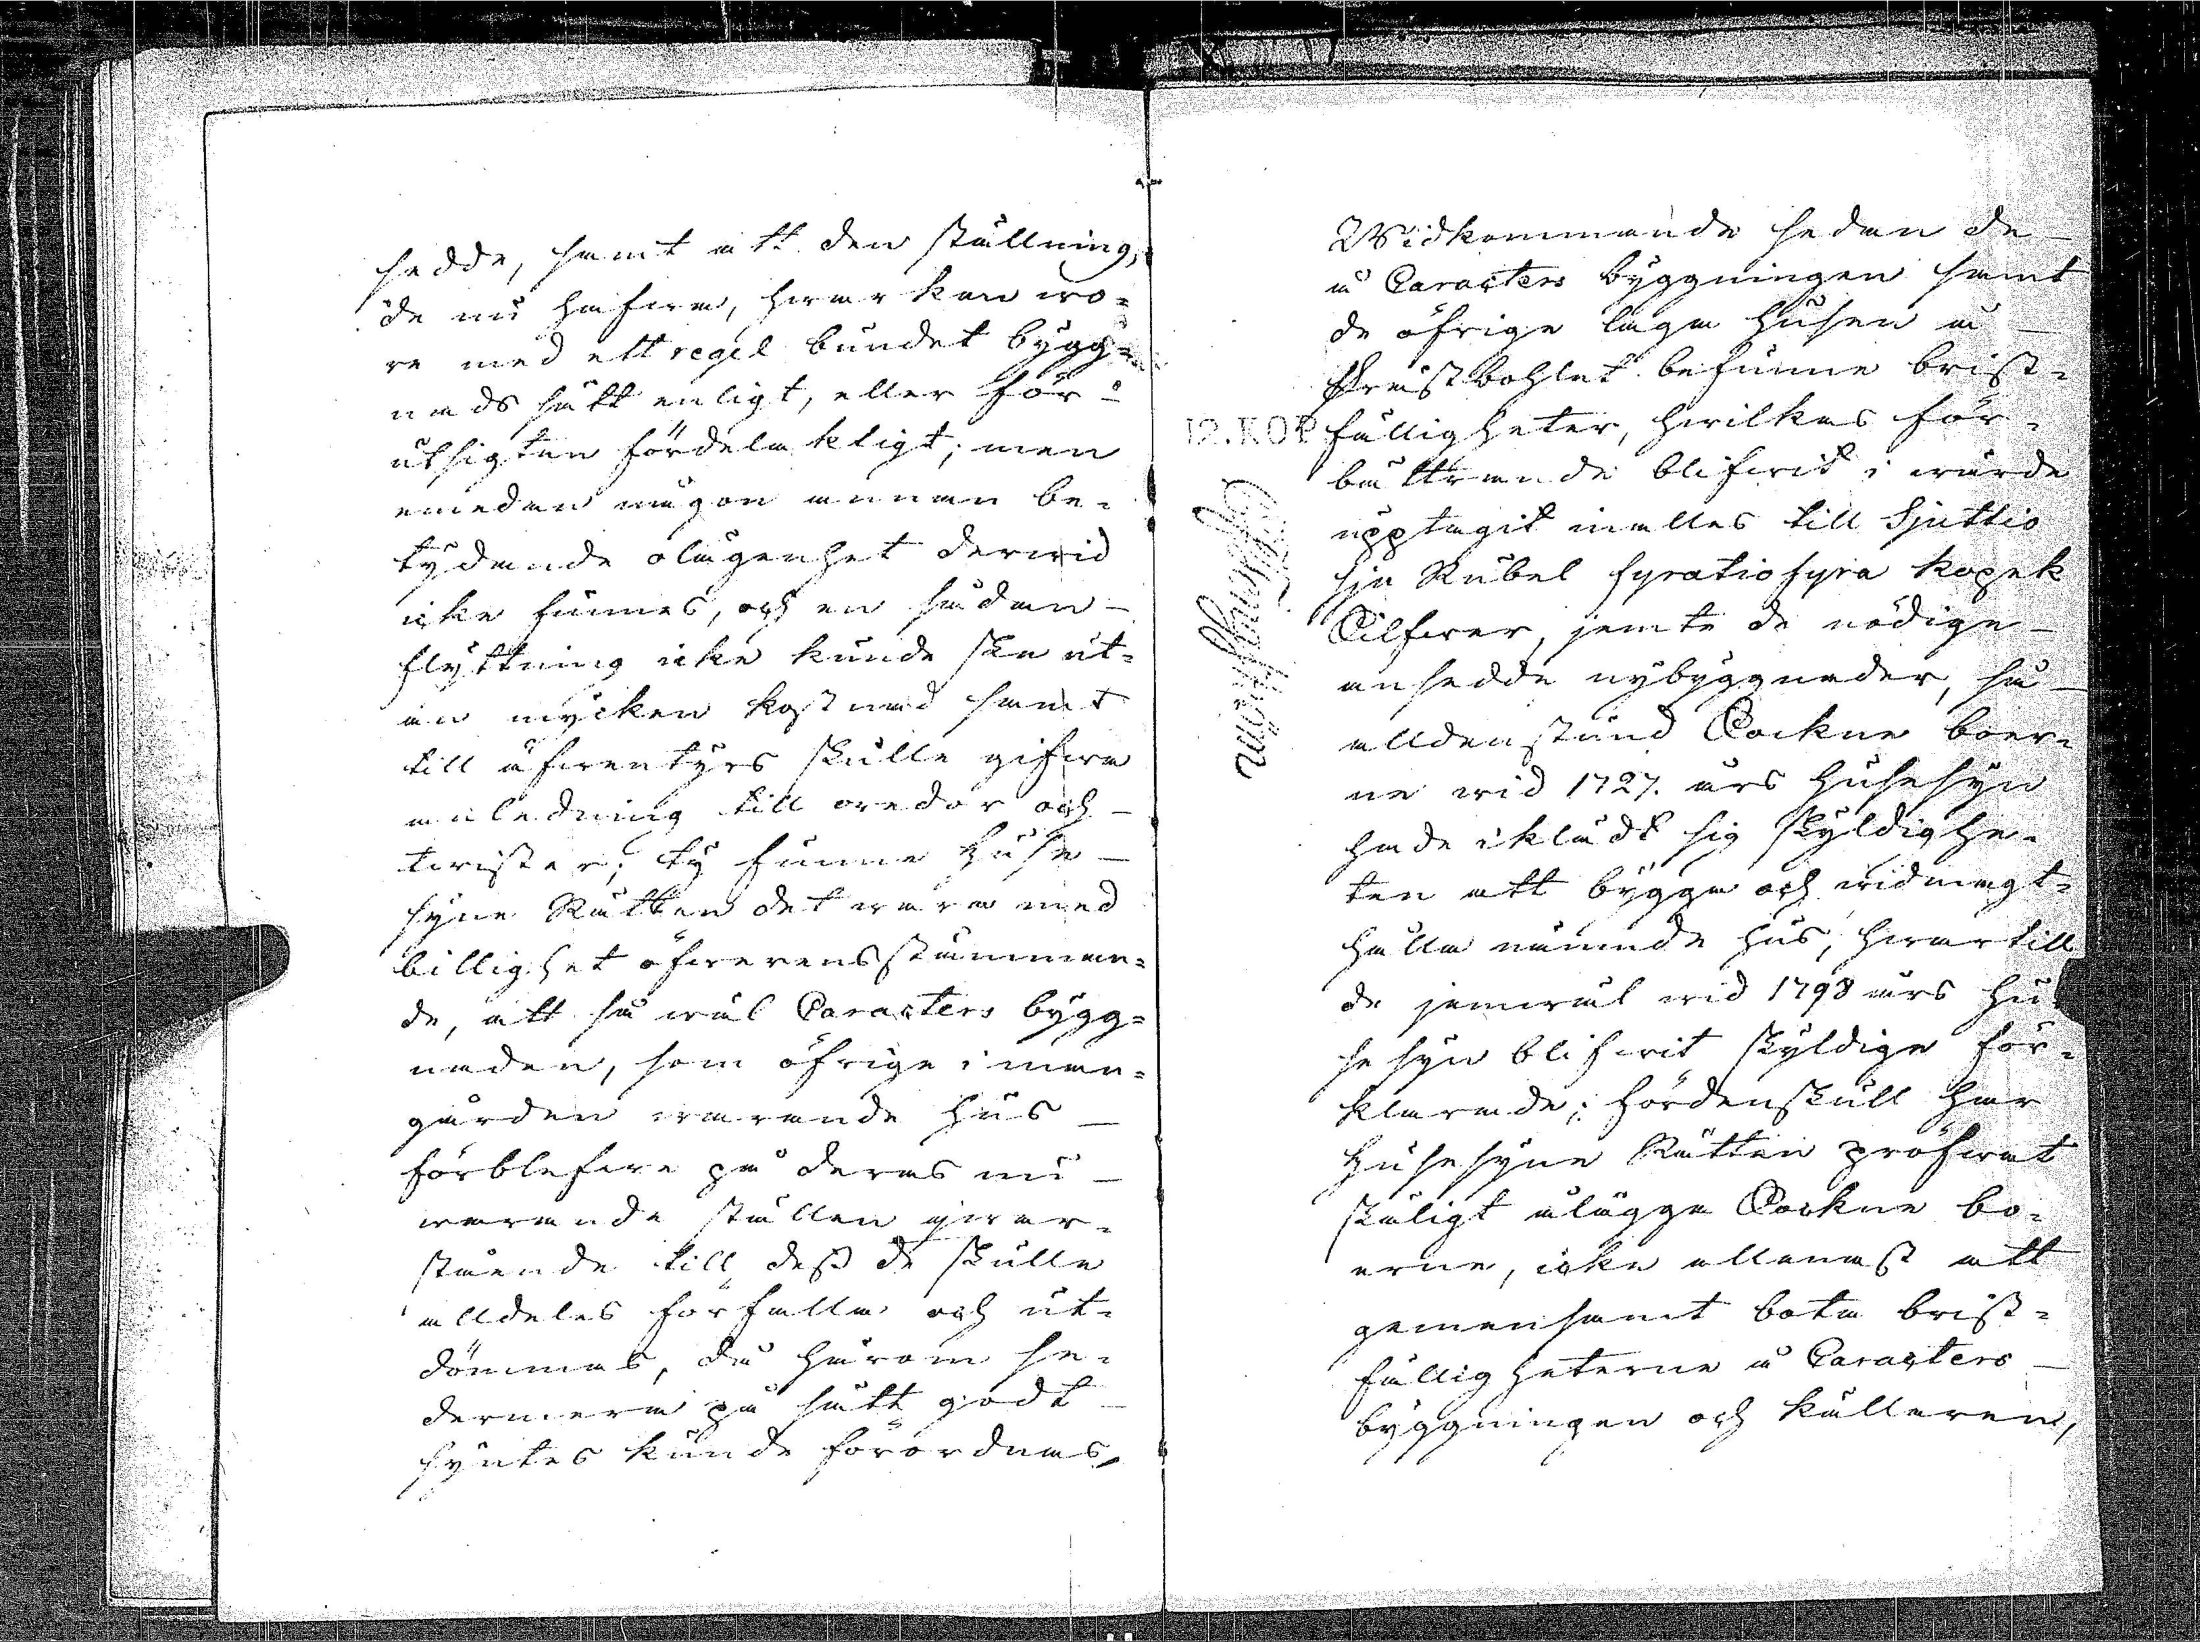 sedde, samt att den ställning,
de nu hafwa, hwarken wo=
re med ett regel bundet bygg=
nads sätt enligt, eller för
utsigten fördelaktligt; men
emedan någon annan be=
tydande olägenhet derwid
icke finnes, och en sådan
flyttning icke kunde ske ut=
an mycken kostnad samt
till äfwentyrs skulle gifwa
anledning till oredor och
twister; ty funne Huse
syne Rätten det wara med
billighet öfwerensstämman=
de, att så wäl Caracters bygg=
naden, som öfrige i man=
gården warande hus
förblefwe på deras nu
warande ställen qwar=
stående till dess de skulle
alldeles förfalla och ut=
dömmas, då härom se=
dermera på sätt godt
syntes kunde förordnas,
Widkommande sedan de
å Caracters byggningen samt
de öfrige laga husen å
Prästbohlet befunne brist=
fälligheter, hwilkas för=
bättrande blifwit i wärde
upptagit inalles till Sjuttio
sju Rubel fyratiofyra kopek
Silfwer, jemte de nödige
ansedde nybyggnader, så
alldenstund Sockne boer=
ne wid 1727. års Husesyn
hade iklädt sig skyldighe=
ten att bygga och widmagt=
hålla nämnde hus, hwartill
de jemwäl wid 1798 års Hu
se syn blifwit skyldige för=
klarade; fördenskull har
Husesyne Rätten pröfwat
skäligt ålägga Sockne bo=
erne, icke allenast att
gemensamt bota brist=
fälligheterne å Caracters
byggningen och källaren,
12.KOP